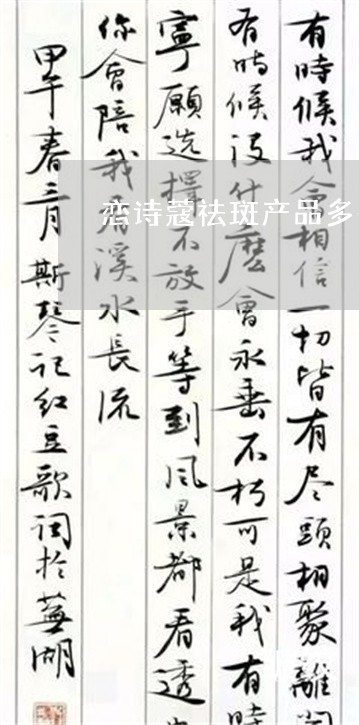 恋诗蔻祛斑产品多
有時候我会相信一切皆有尽頭相聚離
有時候没什麼會永垂不朽可是我有時
寧願选擇不放手等到风景都看透
你會陪我看溪水長流
甲午春三月斯琴记红豆歌词於蕪湖